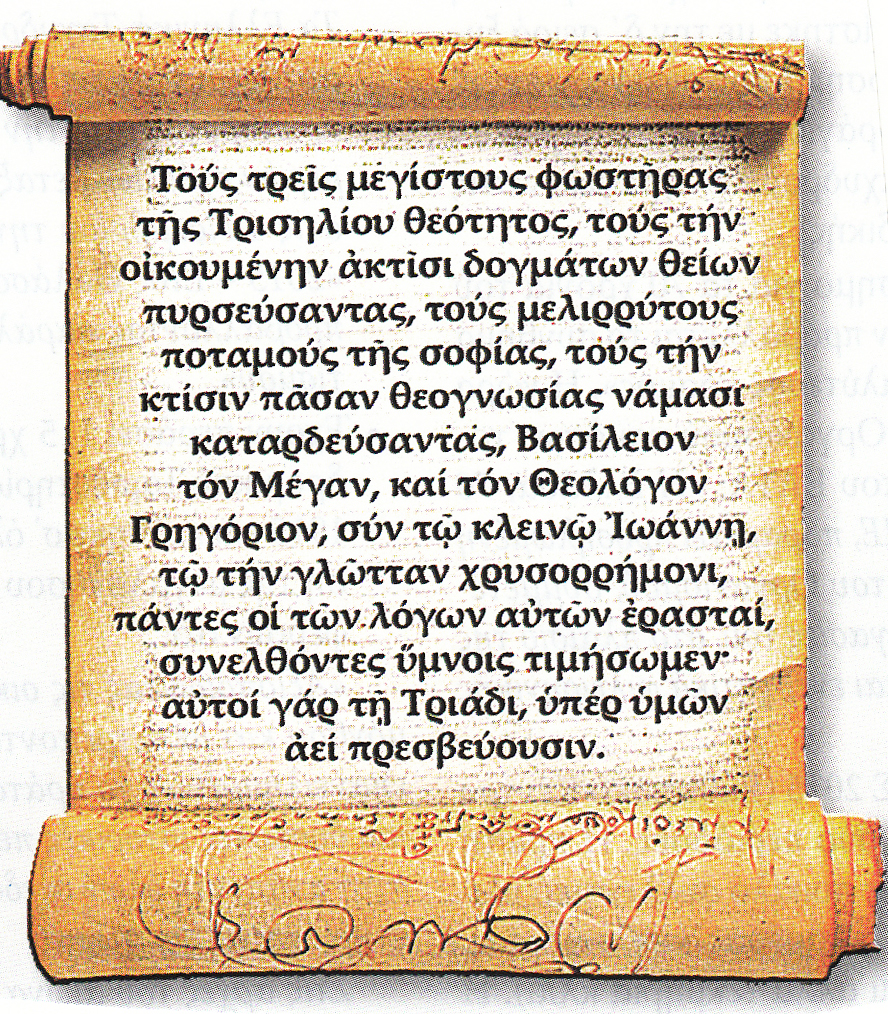 Τούς τρεῖς μεγίστους φωστῆρας
τῆς Τρισηλίου θεότητος, τούς τήν
οἰκουμένην ἀκτῖσι δογμάτων θείων
πυρσεύσαντας, τούς μελιρρύτους
ποταμούς τῆς σοφίας, τούς τήν
κτίσιν πᾶσαν θεογνωσίας νάμασι
καταρδεύσαντας, Βασίλειον
τόν Μέγαν, καί τόν Θεολόγον
Γρηγόριον, σύν τῷ κλεινῷ Ἰωάννῃ,
τῷ τήν γλῶτταν χρυσορρήμονι,
πάντες οἱ τῶν λόγων αὐτῶν ἐρασταί,
συνελθόντες ὕμνοις τιμήσωμεν·
αὐτοί γάρ τῇ Τριάδι, ὑπέρ ὑμῶν
ἀεί πρεσβεύουσιν.